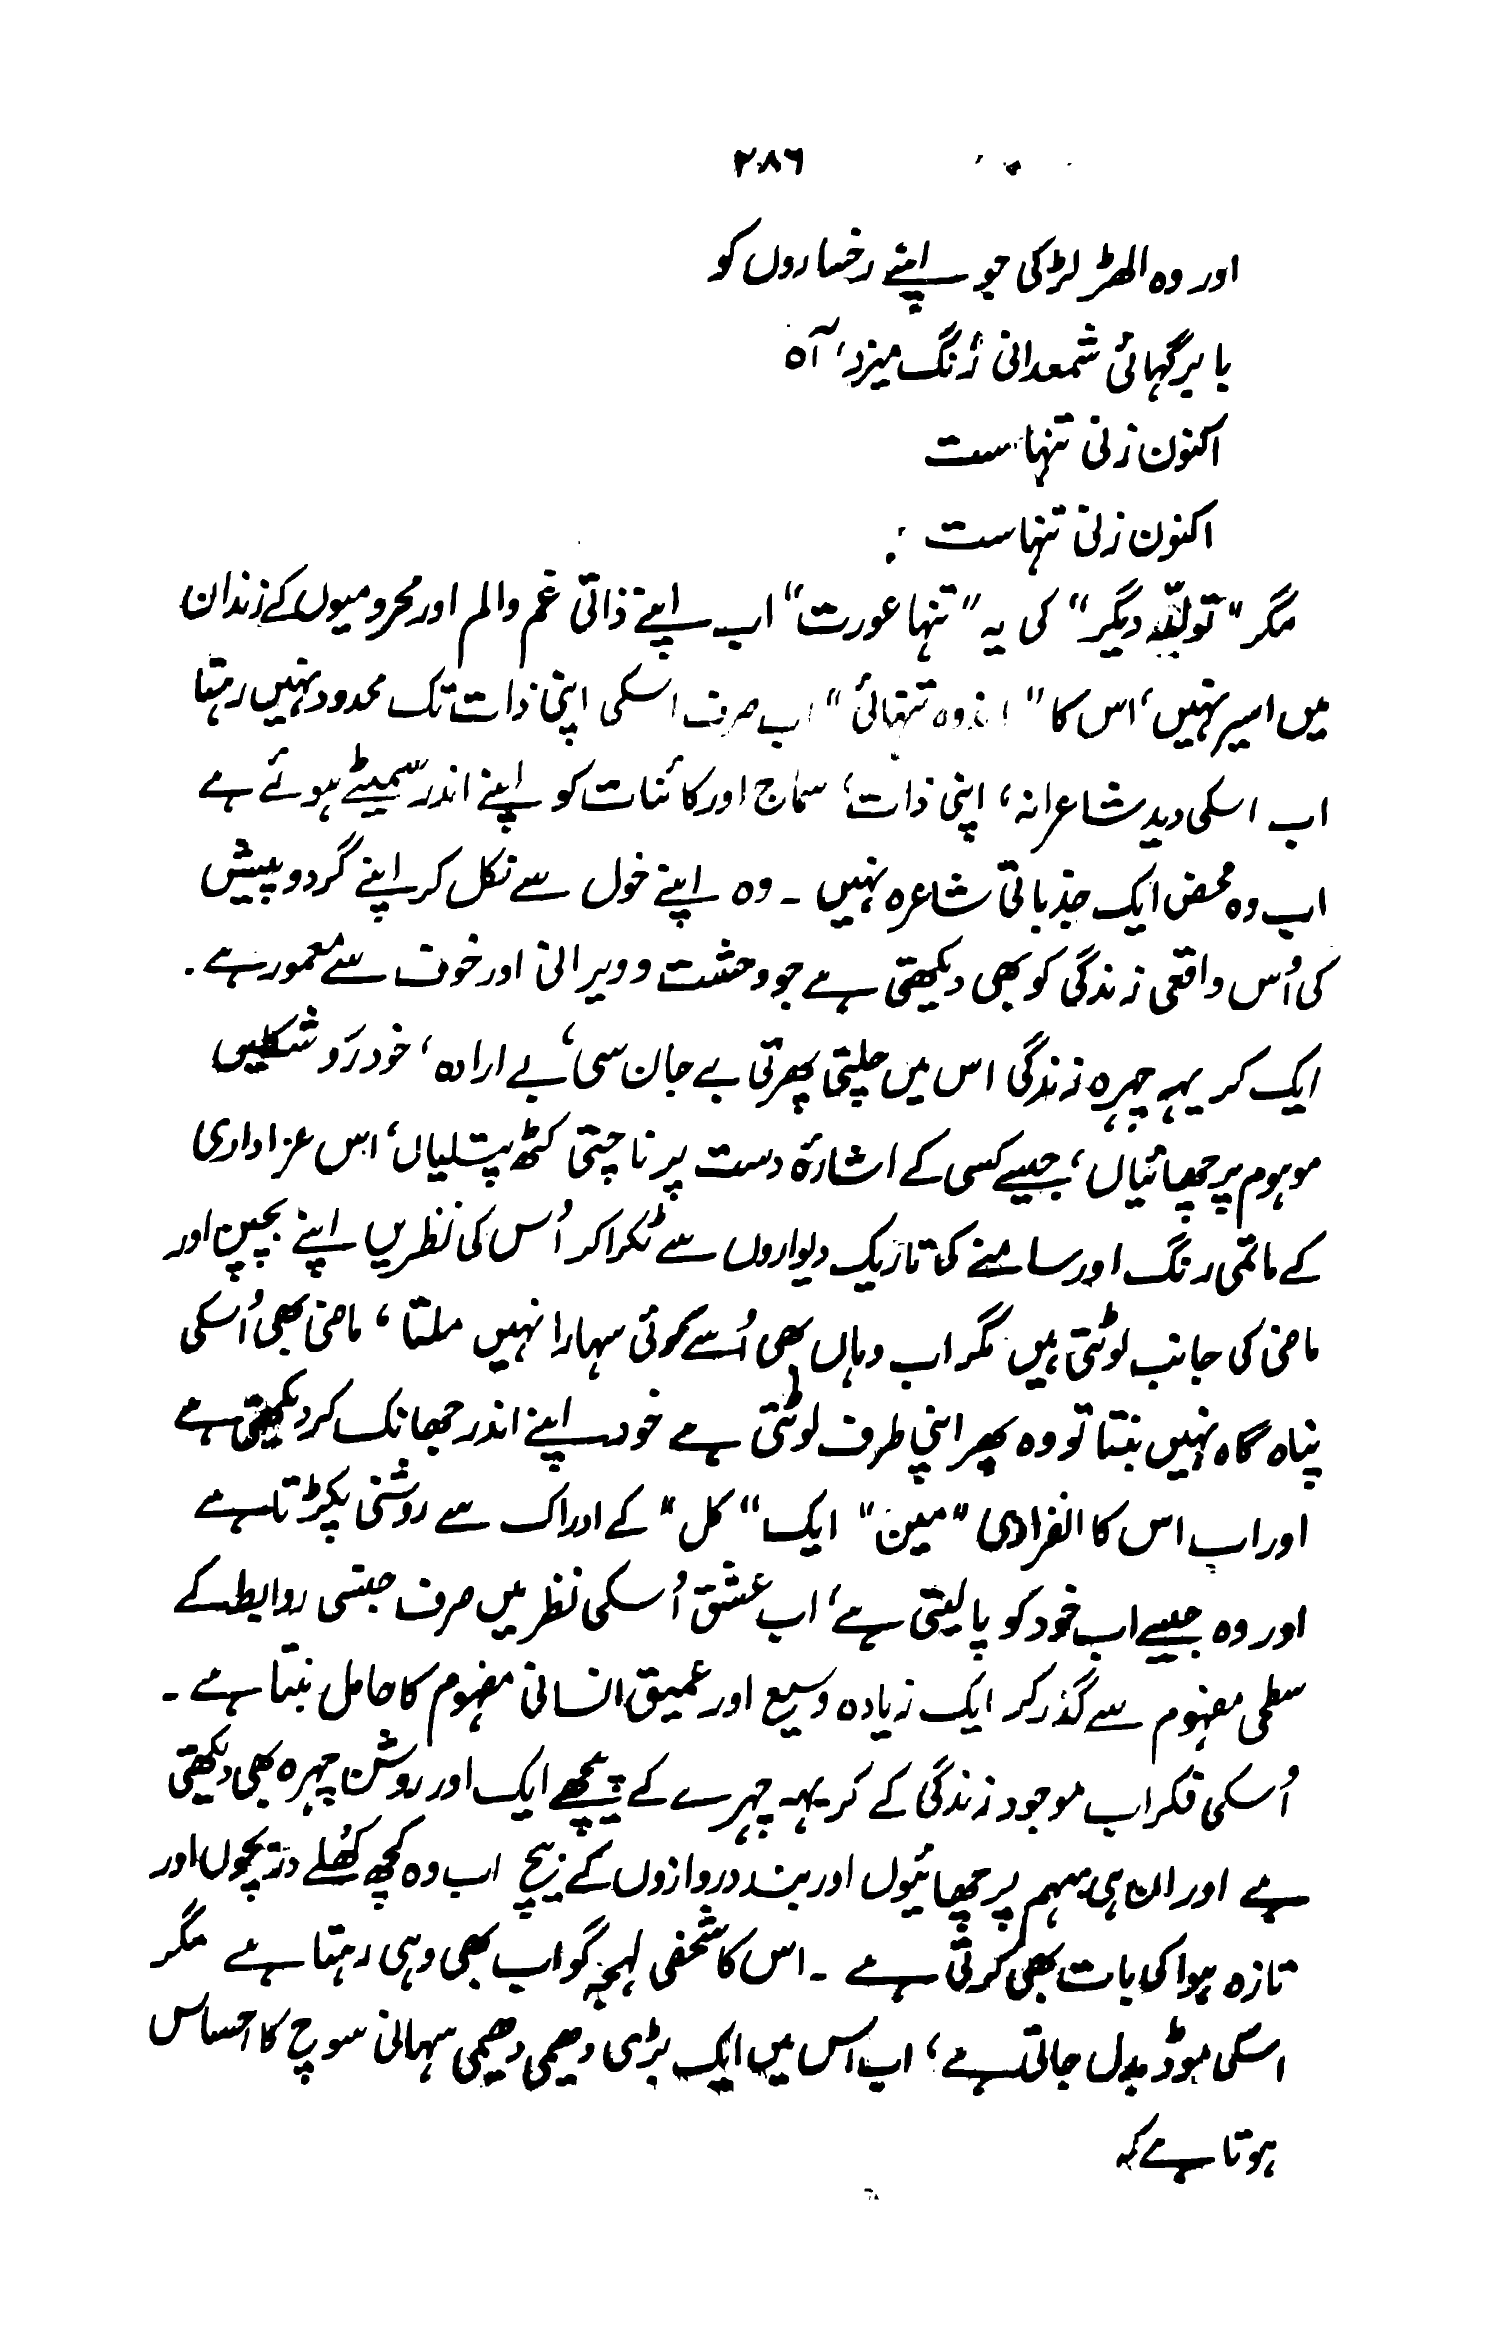 ۲۸۶
اور وہ الھڑ لڑکی جو اپنے رخساروں کو
با برگہائی شمعدانی رنگ میزد، آہ
اکنون زنی تنہاست
اکنون زنی تنہاست :
مگر "تولّدِ دیگر" کی یہ "تنہا عورت" اب اپنے ذاتی غم والم اور محرومیوں کے زندان
میں اسیر نہیں، اس کا "اندوہ تنہائی" اب صرف اسکی اپنی ذات تک محدود نہیں رہتا
اب اسکی دید شاعرانہ، اپنی ذات، سماج اور کائنات کو اپنے اندر سمیٹے ہوئے ہے
اب وہ محض ایک جذباتی شاعرہ نہیں ۔ وہ اپنے خول سے نکل کر اپنے گردوپیش
کی اُس واقعی زندگی کو بھی دیکھتی ہے جو وحشت و ویرانی اور خوف سے معمور ہے ۔
ایک کریہہ چہرہ زندگی اس میں چلتی پھرتی بے جان سی، بے ارادہ، خود رَو شکلیں
موہوم پرچھائیاں، جیسے کسی کے اشارۂ دست پر ناچتی کٹھ پتلیاں، اس عزاداری
کے ماتمی رنگ اور سامنے کی تاریک دیواروں سے ٹکرا کر اُس کی نظریں اپنے بچپن اور
ماضی کی جانب لوٹتی ہیں مگر اب وہاں بھی اُسے کوئی سہارا نہیں ملتا، ماضی بھی اُسکی
پناہ گاہ نہیں بنتا تو وہ پھر اپنی طرف لوٹتی ہے خود اپنے اندر جھانک کر دیکھتی ہے
اور اب اس کا انفرادی "مین" ایک "کل" کے ادراک سے روشنی پکڑتا ہے
اور وہ جیسے اب خود کو پا لیتی ہے، اب عشق اُسکی نظر میں صرف جنسی روابط کے
سطحی مفہوم سے گذر کر ایک زیادہ وسیع اور عمیق انسانی مفہوم کا حامل بنتا ہے ۔
اُسکی فکر اب موجود زندگی کے کریہہ چہرے کے پیچھے ایک اور روشن چہرہ بھی دیکھتی
ہے اور ان ہی مبہم پرچھائیوں اور بند دروازوں کے بیچ اب وہ کچھ کھُلے دریچوں اور
تازہ ہوا کی بات بھی کرتی ہے ۔ اس کا شخصی لہجہ گو اب بھی وہی رہتا ہے مگر
اسکی موڈ بدل جاتی ہے، اب اس میں ایک بڑی دھیمی دھیمی سہانی سوچ کا احساس
ہوتا ہے کہ